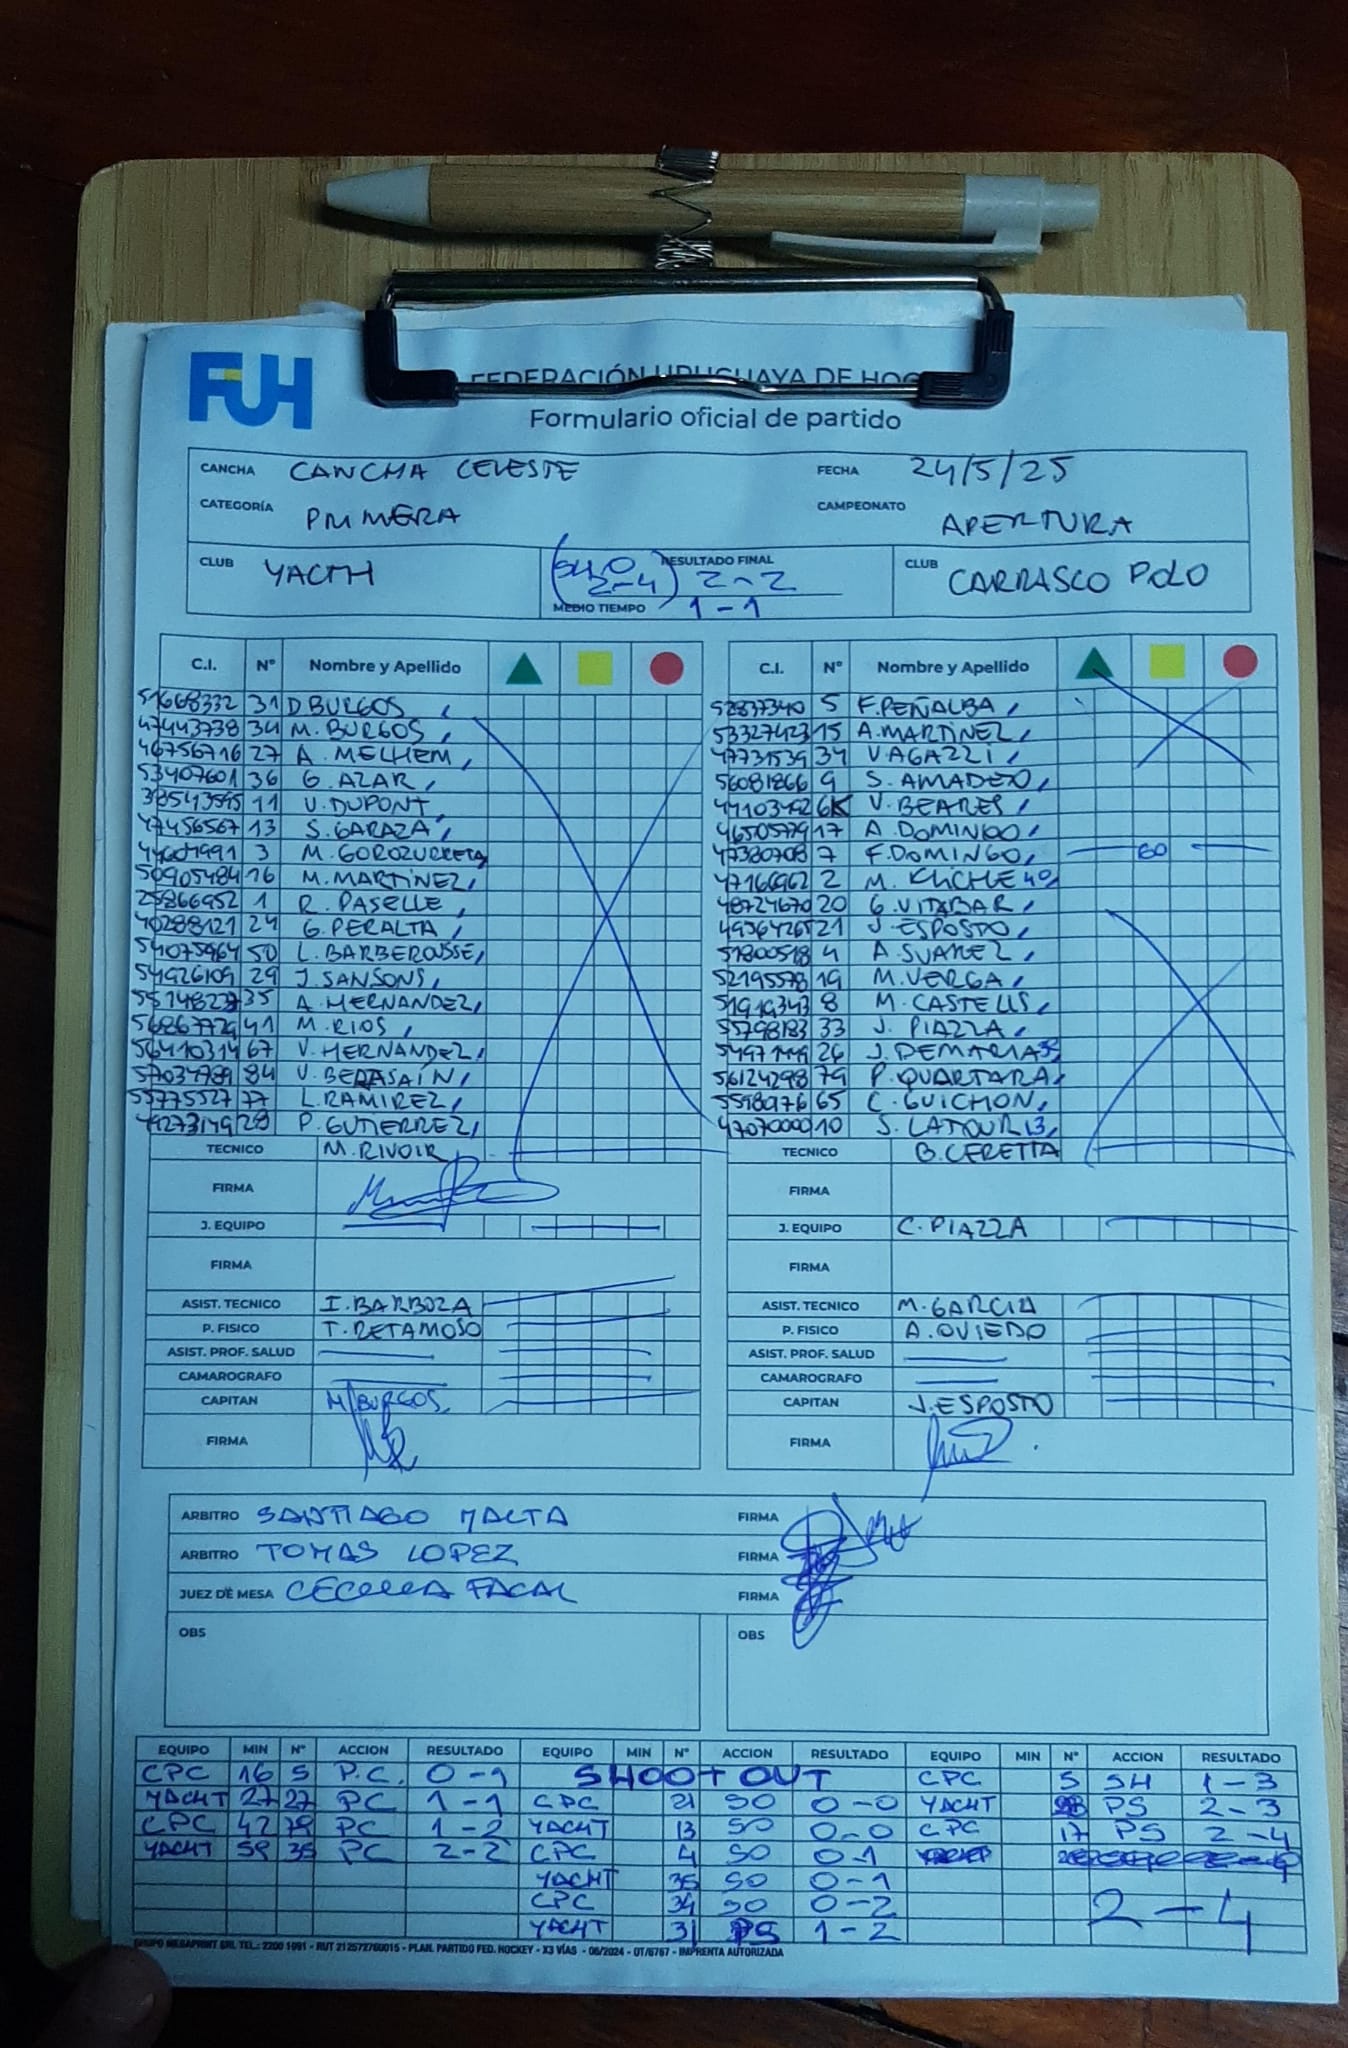 FUH
FEDERACIÓN URUGUAYA DE HOC
Formulario oficial de partido
CANCHA CANCHA CELESTE FECHA 24/5/25
CATEGORÍA PRIMERA CAMPEONATO APERTURA
CLUB YACTH RESULTADO FINAL (2-4) 2-2 CLUB CARRASCO POLO
MEDIO TIEMPO 1-1
C.I. Nº Nombre y Apellido C.I. Nº Nombre y Apellido
51668332 31 D. BURGOS, 52837340 5 F. PEÑALBA,
47443738 34 M. BURGOS, 53327423 15 A. MARTINEZ,
46756716 27 A. MELHEM, 47731539 34 V. AGAZZI,
53407601 36 G. AZAR, 56081866 9 S. AMADEO,
11 V. DUPONT, V. BEARES,
47456567 13 S. GARAZA, 46505779 17 A. DOMINGO,
3 M. GOROZURRETA, 47380708 7 F. DOMINGO, 60
50905484 16 M. MARTINEZ, 47166962 2 M. KLICHE 40,
25866952 1 R. PASELLE, 48724670 20 G. VITABAR,
40288121 24 G. PERALTA, 21 J. ESPOSTO,
54075964 50 L. BARBEROUSSE, 51800518 4 A. SUAREZ,
54926109 29 J. SANSONS, 52195578 19 M. VERGA,
35 A. HERNANDEZ, 51919343 8 M. CASTELLS,
56867729 41 M. RIOS, 55798183 33 J. PIAZZA,
56410314 67 V. HERNANDEZ, 26 J. DEMARIA
57034789 84 V. BERASAÍN, 56124298 79 P. QUARTARA,
55775527 77 L. RAMIREZ, 5598976 65 C. GUICHON,
49273149 28 P. GUTIERREZ, 47070000 10 S. LATOUR 13,
TECNICO M. RIVOIR TECNICO B. CERETTA
FIRMA FIRMA
J. EQUIPO J. EQUIPO C. PIAZZA
FIRMA FIRMA
ASIST. TECNICO I. BARBOZA ASIST. TECNICO M. GARCIA
P. FISICO T. RETAMOSO P. FISICO A. OVIEDO
ASIST. PROF. SALUD ASIST. PROF. SALUD
CAMAROGRAFO CAMAROGRAFO
CAPITAN M. BURGOS CAPITAN J. ESPOSTO
FIRMA FIRMA
ARBITRO SANTIAGO MALTA FIRMA
ARBITRO TOMAS LOPEZ FIRMA
JUEZ DE MESA CECILIA FACAL FIRMA
OBS OBS
EQUIPO MIN Nº ACCION RESULTADO EQUIPO MIN Nº ACCION RESULTADO EQUIPO MIN Nº ACCION RESULTADO
CPC 16 5 P.C. 0-1 SHOOT OUT CPC 5 SH 1-3
YACHT 27 27 PC 1-1 CPC 21 SO 0-0 YACHT PS 2-3
CPC 42 79 PC 1-2 YACHT 13 SO 0-0 CPC 17 PS 2-4
YACHT 59 35 PC 2-2 CPC 4 SO 0-1
YACHT 35 SO 0-1
CPC 34 SO 0-2 2-4
YACHT 31 PS 1-2
GRUPO MEGAPRINT SRL TEL.: 2200 1991 - RUT 212572760015 - PLAN. PARTIDO FED. HOCKEY - X3 VÍAS - 06/2024 - OT/6767 - IMPRENTA AUTORIZADA